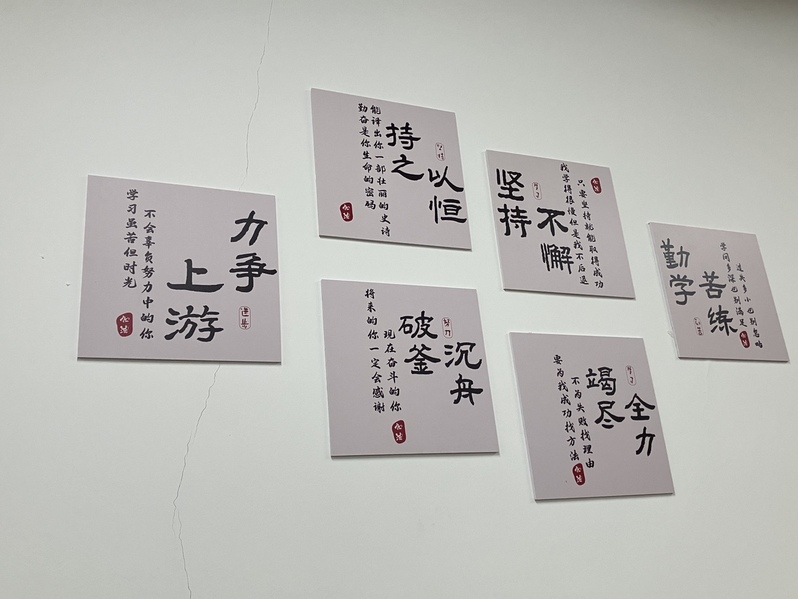 力争
上游
学习虽苦但时光
不会辜负努力中的你
持之
以恒
勤奋是你生命的密码
能译出你一部壮丽的史诗
坚持
不懈
我学得很慢但是我不后退
只要坚持就能取得成功
破釜
沉舟
将来的你一定会感谢
现在奋斗的你
竭尽
全力
不为失败找理由
要为成功找方法
勤学
苦练
学问多深也别满足
过失多小也别忽略